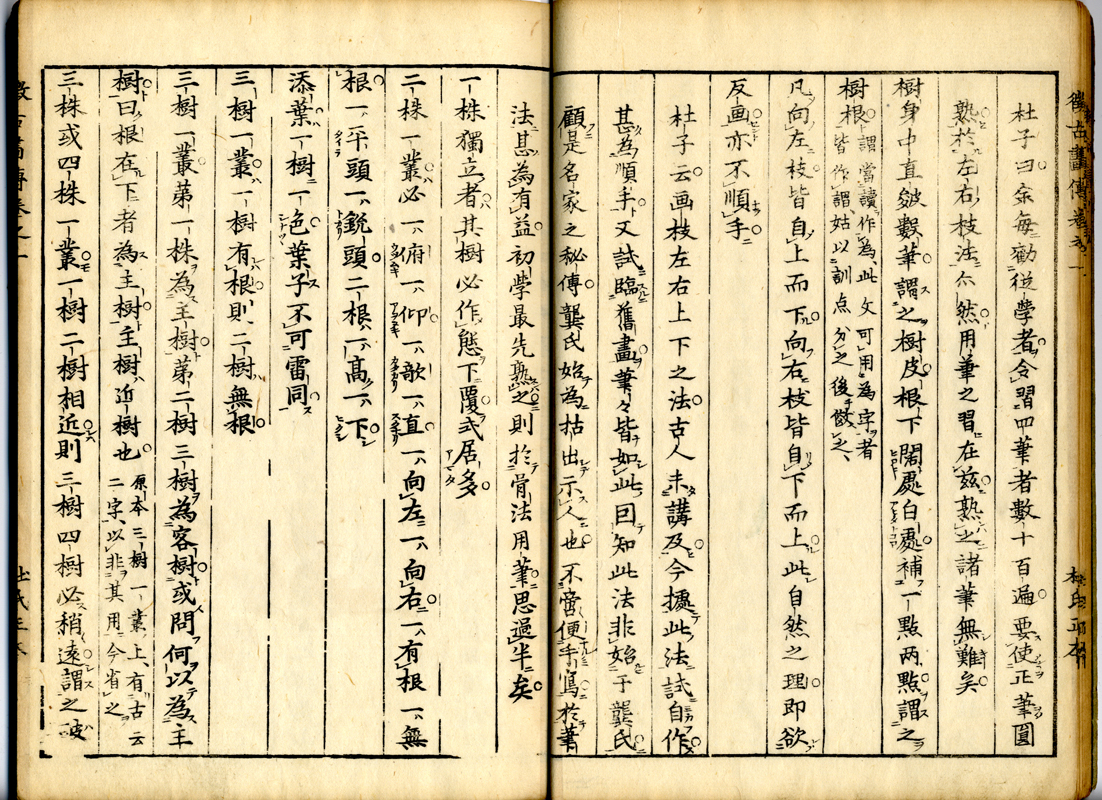 杜子曰余每勸從學者令習四筆者數十百遍要使正筆圓
熟於左右枝法亦然用筆之習在茲熟之諸筆無難矣
樹身中直皴數筆謂之樹皮根下闊處白處補一點兩點謂之
樹根謂當讀作為此文可用為字者
皆作謂姑以訓点分之後傚之
凡向左枝皆自上而下向右枝皆自下而上此自然之理即欲
反画亦不順手
杜子云画枝左右上下之法古人未講及今據此法試自作
甚為順手又試臨舊畫筆々皆如此回知此法非始于龔氏
顧是名家之秘傳龔氏始為拈出示人也不啻便手寫於筆
法甚為有益初學最先熟之則於骨法用筆思過半矣
一株獨立者其樹必作態下覆式居多
二株一叢必一俯一仰一欹一直一向左一向右一有根一無
根一平頭一銳頭二根一高一下
添葉一樹一色葉子不可雷同
三樹一叢一樹有根則二樹無根
三樹一叢第一株為主樹第二樹三樹為客樹或問何以為主
樹曰根在下者為主樹主樹近樹也
原本三樹一叢上有古云
二字以非其用今省之
三株或四株一叢一樹二樹相近則三樹四樹必稍遠謂之破